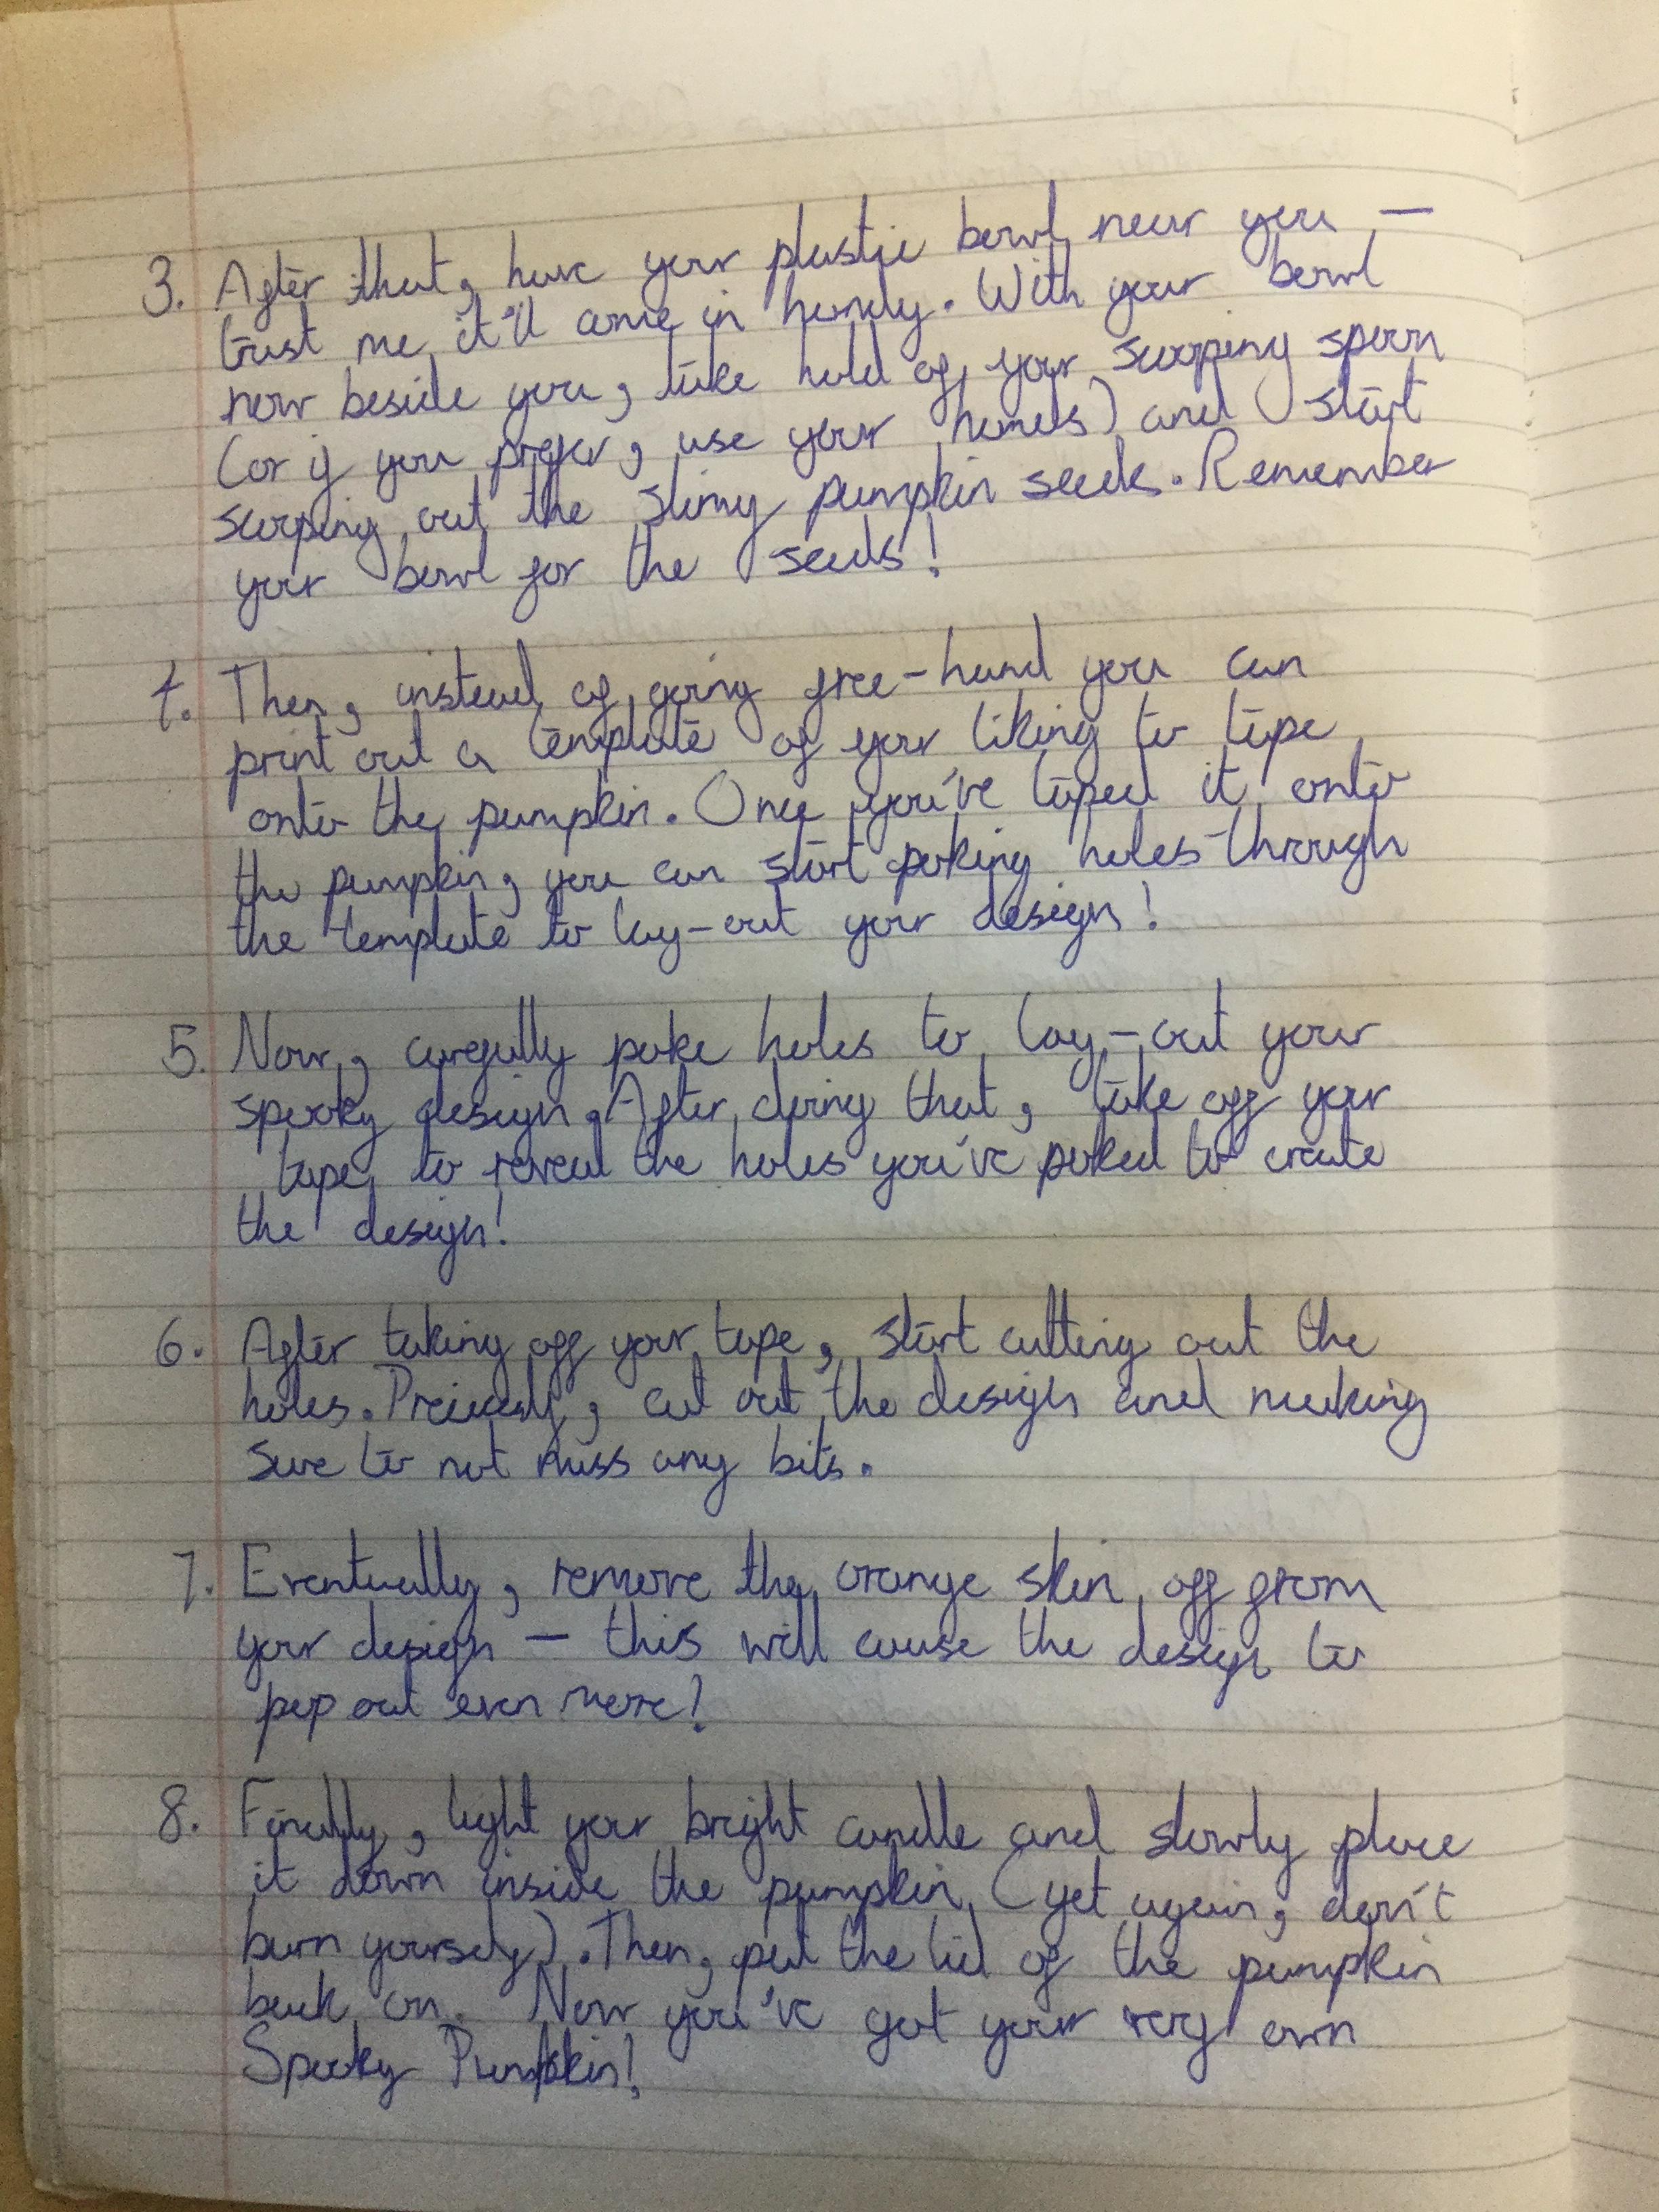 3. After that, have your plastic bowl near you —
trust me it'll come in handy. With your bowl
now beside you, take hold of your scooping spoon
(or if you prefer, use your hands) and start
scooping out the slimy pumpkin seeds. Remember
your bowl for the seeds!
4. Then, instead of going free-hand you can
print out a template of your liking to tape
onto the pumpkin. Once you've taped it onto
the pumpkin, you can start poking holes through
the template to lay-out your design!
5. Now, carefully poke holes to lay-out your
spooky design. After doing that, take off your
tape to reveal the holes you've poked to create
the design!
6. After taking off your tape, start cutting out the
holes. Precisely, cut out the design and making
sure to not miss any bits.
7. Eventually, remove the orange skin off from
your design — this will cause the design to
pop out even more!
8. Finally, light your bright candle and slowly place
it down inside the pumpkin (yet again, don't
burn yourself). Then, put the lid of the pumpkin
back on. Now you've got your very own
Spooky Pumpkin!